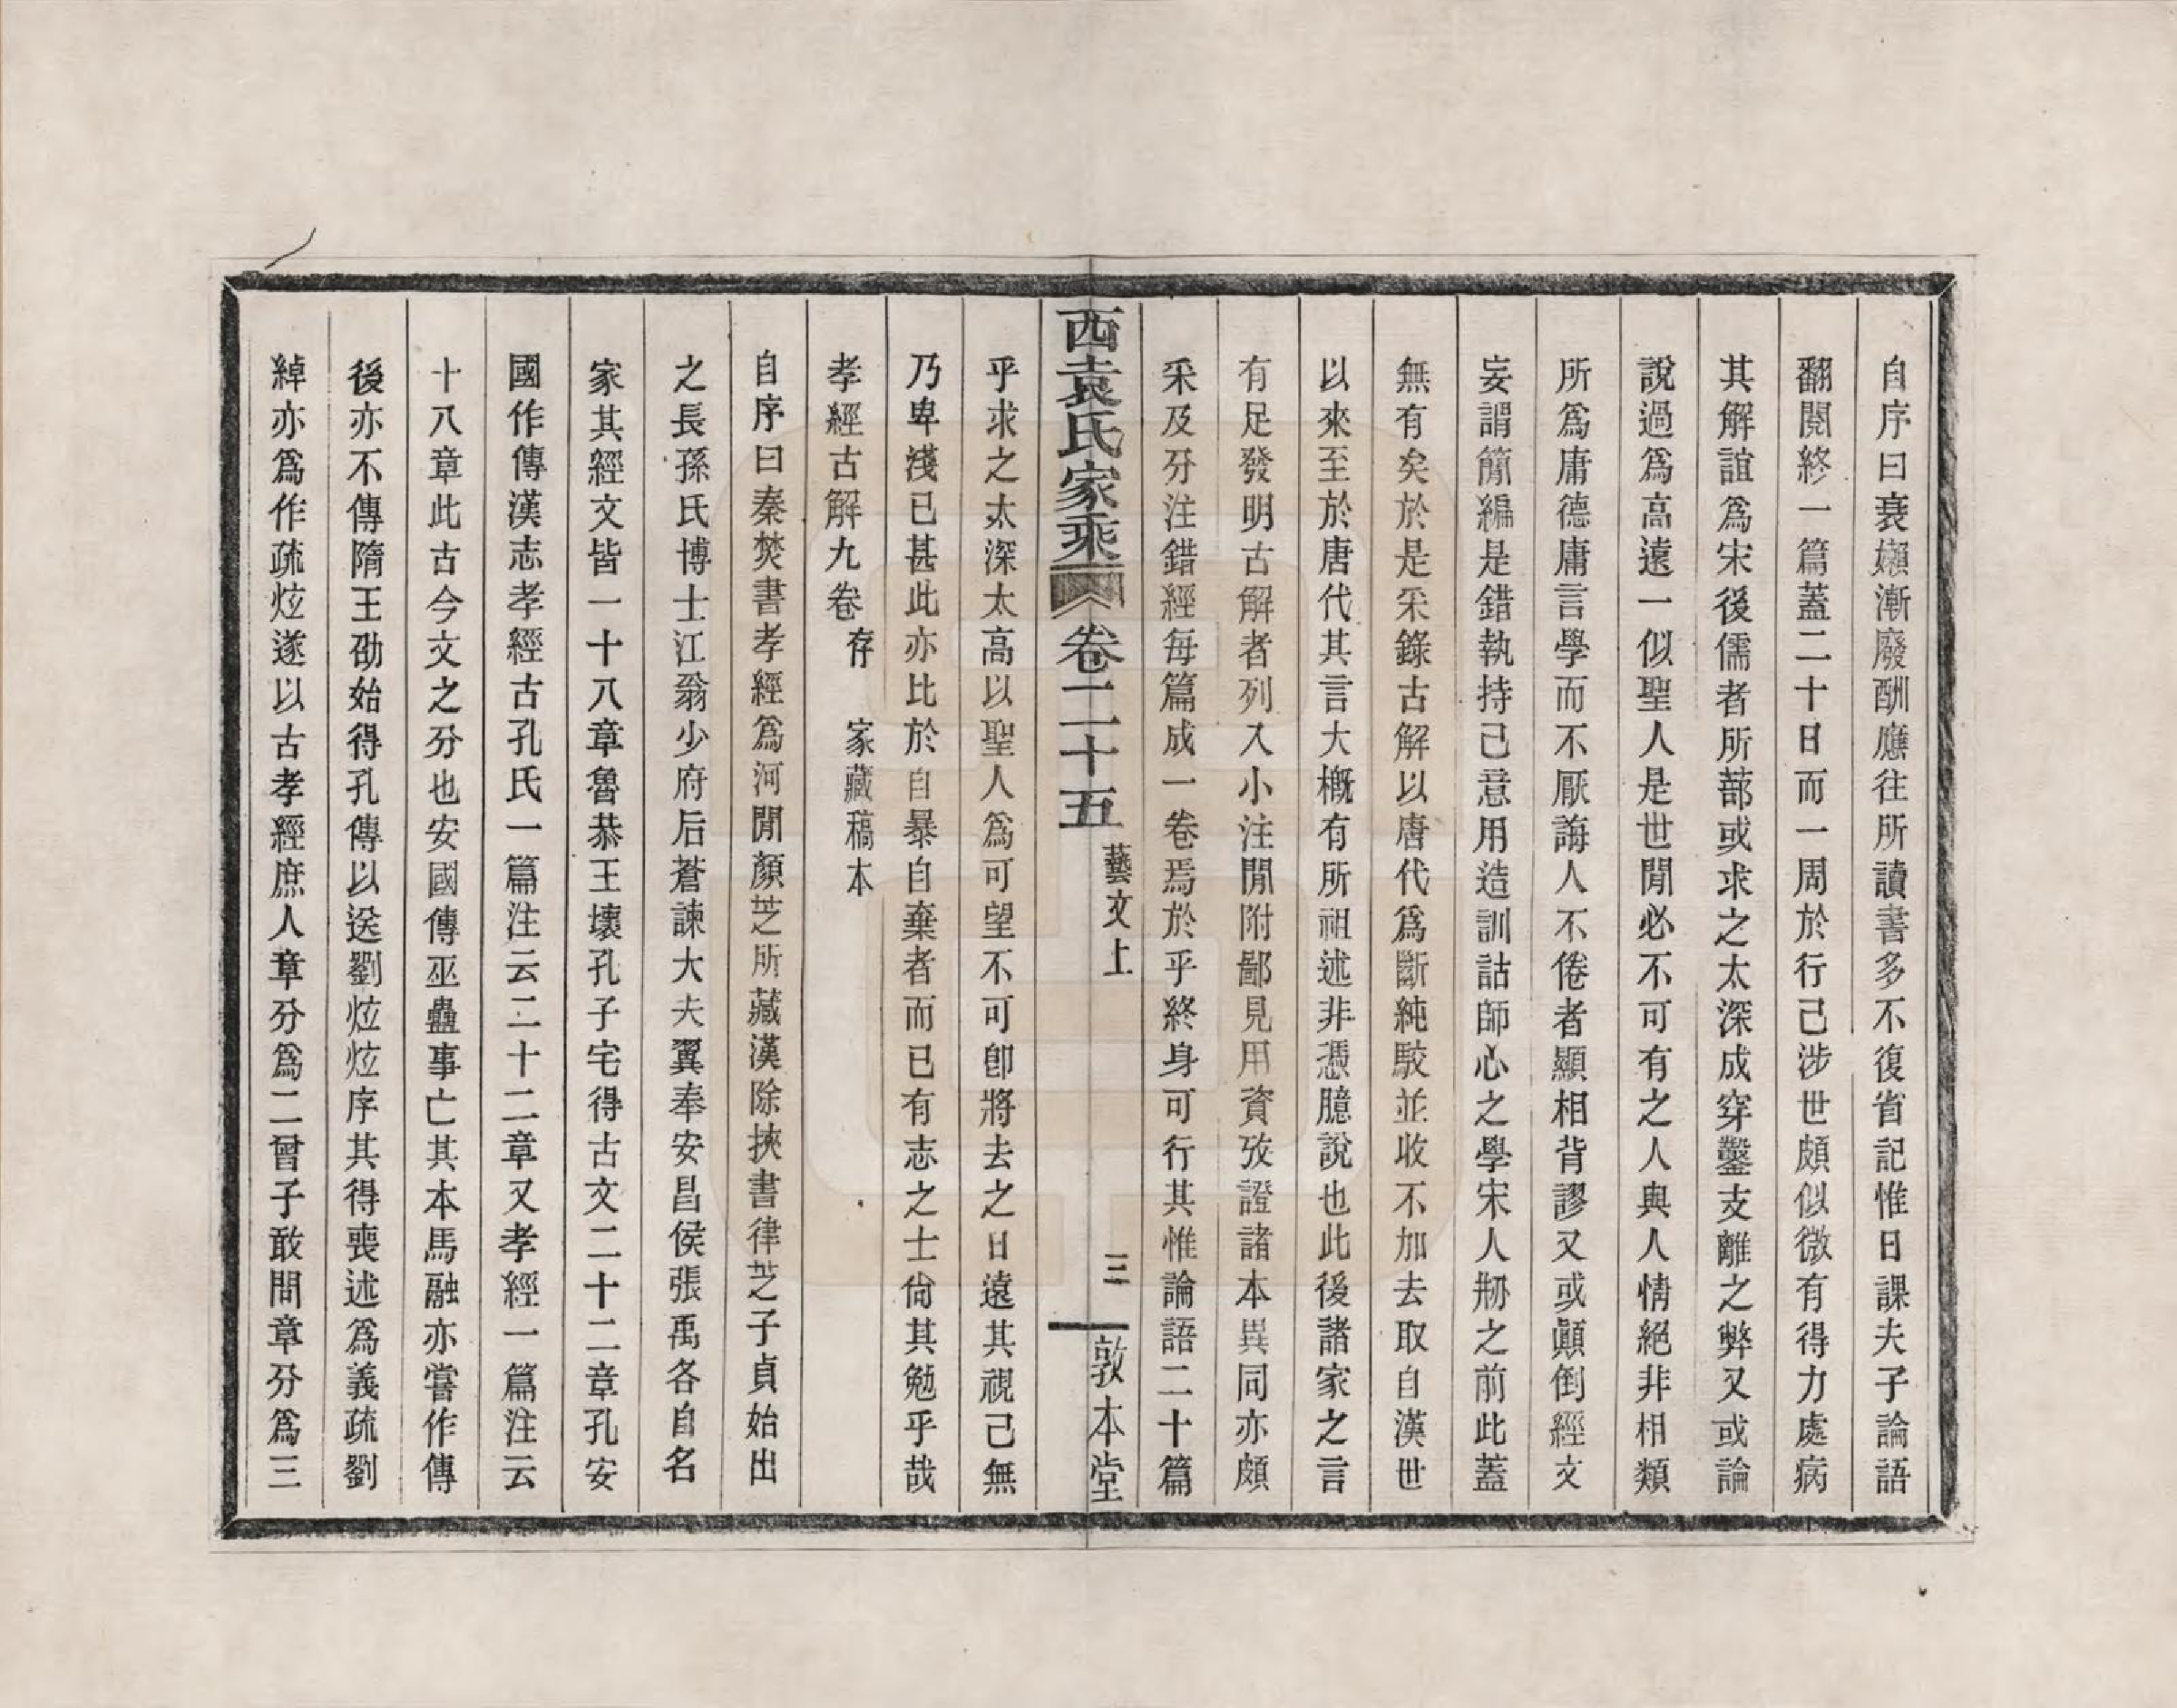 自序曰衰嬾漸廢酬應往所讀書多不復省記惟日課夫子論語
翻閱終一篇蓋二十日而一周於行己涉世頗似微有得力處病
其解誼爲宋後儒者所蔀或求之太深成穿鑿支離之弊又或論
說過爲高遠一似聖人是世閒必不可有之人與人情絕非相類
所爲庸德庸言學而不厭誨人不倦者顯相背謬又或顚倒經文
妄謂簡編是錯執持己意用造訓詁師心之學宋人刱之前此蓋
無有矣於是采錄古解以唐代爲斷純駁並收不加去取自漢世
以來至於唐代其言大槪有所祖述非憑臆說也此後諸家之言
有足發明古解者列入小注閒附鄙見用資攷證諸本異同亦頗
采及分注錯經每篇成一卷焉於乎終身可行其惟論語二十篇
西袁氏家乘 卷二十五 藝文上 三 敦本堂
乎求之太深太高以聖人爲可望不可卽將去之日遠其視己無
乃卑淺已甚此亦比於自暴自棄者而已有志之士尙其勉乎哉
孝經古解九卷 存 家藏稿本
自序曰秦焚書孝經爲河閒顏芝所藏漢除挾書律芝子貞始出
之長孫氏博士江翁少府后蒼諫大夫翼奉安昌侯張禹各自名
家其經文皆一十八章魯恭王壞孔子宅得古文二十二章孔安
國作傳漢志孝經古孔氏一篇注云二十二章又孝經一篇注云
十八章此古今文之分也安國傳巫蠱事亡其本馬融亦嘗作傳
後亦不傳隋王劭始得孔傳以送劉炫炫序其得喪述爲義疏劉
綽亦爲作疏炫遂以古孝經庶人章分爲二曾子敢問章分爲三